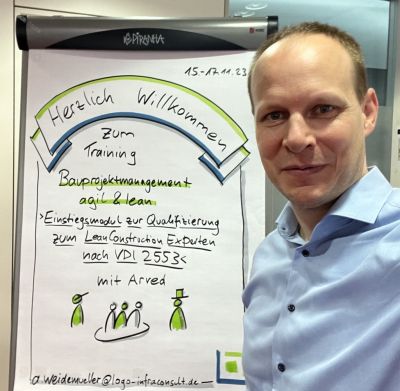 PIRANHA
15.-17.11.23
Herzlich Willkommen
zum
Training
Bauprojektmanagement
agil & lean
>Einstiegsmodul zur Qualifizierung
zum LeanConstruction Experten
nach VDI 2553<
mit Arved
a.weidemueller@logo-infraconsult.de